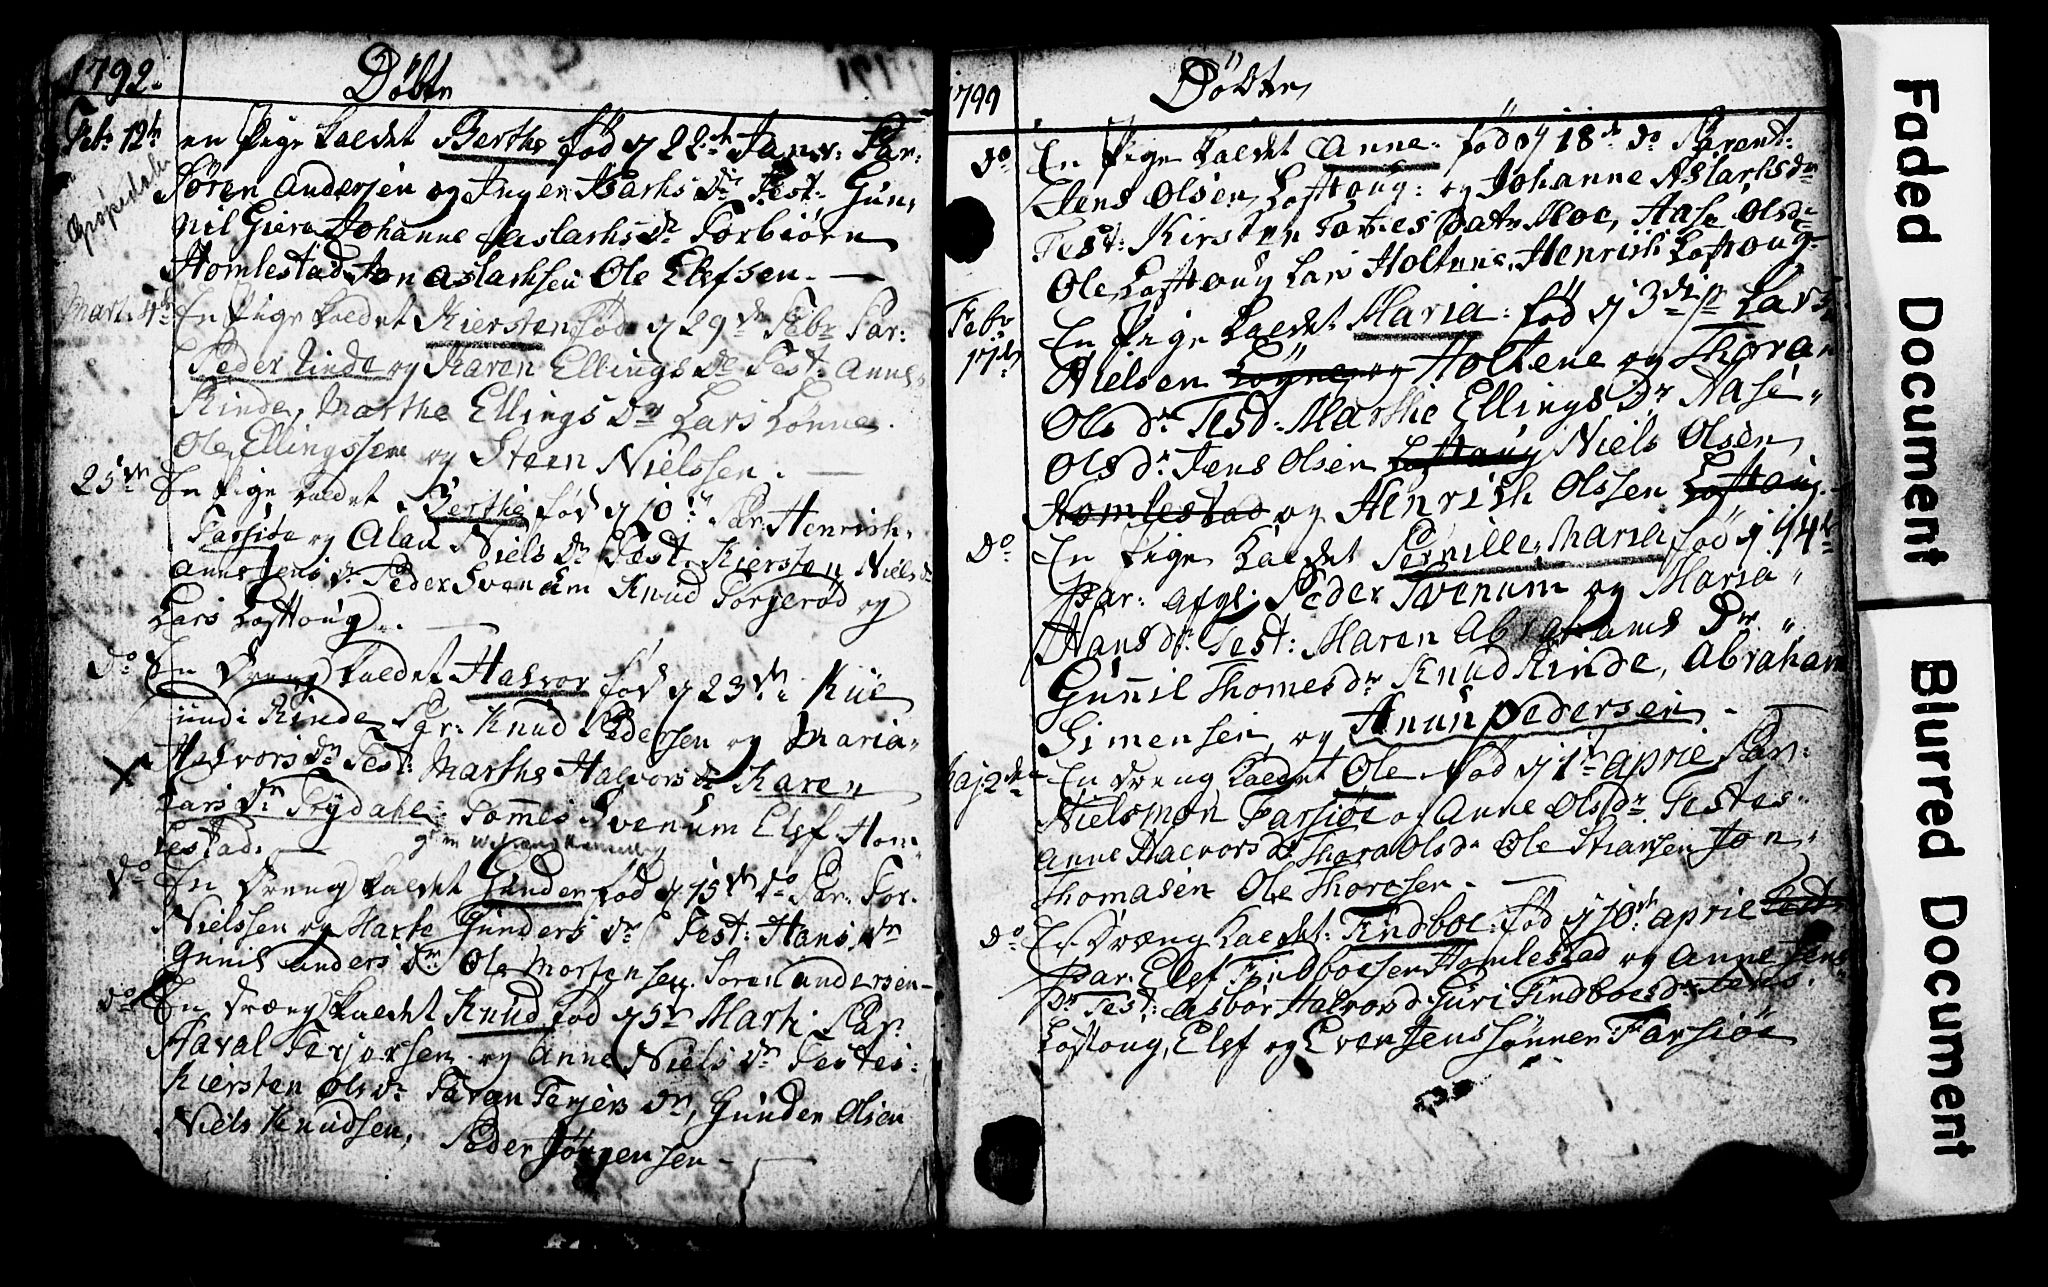 1792.
Döbte
Febr 12te en Pige kaldet Berthe föd d 22de Janv: Par:
Sören Andersen og Inger Isachs Dr Test: Gun,
nil Giera Johanne Aslachs Dr Torbiörn
Homlestad Jon Aslachsen Ole Elefsen. —
Mart: 4de En Pige kaldet Kiersten föd d 29de Febr Par:
Peder Rinde og Karen Ellings Dr Test: Anne
Rinde, Marthe Ellings Dr Lars Lönne
Ole Ellingssen og Steen Nielssen. —
25de En Pige kaldet Berthe föd d 10de Par: Henrich
Farsiöe og Alau Niels Dr Test. Kiersten Niels Dr
Anne Jens Dr Peder Svenum Knud Torgerod og
Lars Loftoug. —
Do En Dreng kaldet Halvor föd d 23de i Küe
iundi Rinde Par: Knud Pedersen og Maria
Halvors Dr Test: Marthe Halvors Dr Karen
Lars Dr Trydahl: Tommes Svenum Elef Hom
lestad. —
Do En Dreng kaldet Gunder föd d 15de Do Par: Tor
Nielssen og Marte Gunders Dr Test: Hans Dr
Gunil Anders Dr Ole Mortensen Soren Andersen —
Do En Dreng kaldet Knud föd d 5te Marti Par:
Taral Terjersen og Anne Niels Dr Testes:
Kiersten Ols Dr Taran Terjers Dr, Gunder Olsen
Niels Knudsen, Peder Jörgensen —
1799
Döbte
Do En Pige kaldet Anne föd d 18de Do Parent:
Jens Olsen Loftoug: og Johanne Aslachsdr
Test: Kirsten Tories Datr Moe, Aase Olsdr
Ole Loftoug Lars Holtene, Henrich Loftoug
Febr 17de En Pige kaldet Maria: föd d 3de Lars
Nielsen Lögne og Holtene og Thoran
Ols dr Test: Marthe Ellings Dr Aase
Ols dr Jens Olsen Loftoug Niels Olsen
Homlestad og Henrich Olssen Loftoug
Do En Pige kaldet Pernille Maria föd d 14de
Par: afgl: Peder Svenum og Maria
Hans dr Test: Maren Abrahams Dr
Gunnil Thomes dr Knud Rinde, Abraham
Simensen, og Anun Pedersen —
Maj: 2de En Dreng kaldet Ole föd d 1te April Par:
Niels Farsiöe og Anne Ols dr. Testes
Anne Halvors dr Thora Ols dr Ole Jon
Thomasen Ole Thoresen —
Do En Dræng kaldet: Findboe: föd d 10de April Test
Par: Elef Findboesen Homlestad og Anne Jens
Dr Test: Asbor Halvors d Guri Findboes dr Jens
Loftoug, Elef og Even Jenssönner Farsiöe
Faded Document
Blurred Document